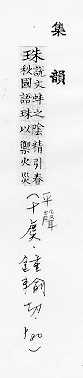 集韻
珠
說文蚌之陰精引春
秋國語珠以禦火災
平聲
(十虞·鍾輸切·p80)